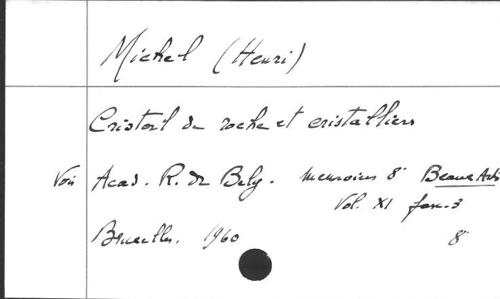 Michel (Henri)
Cristal de roche et cristalliers
Voir Acad. R. de Belg. Memoires 8° Beaux Arts
Vol. XI fasc. 3
Bruxelles. 1960 8°